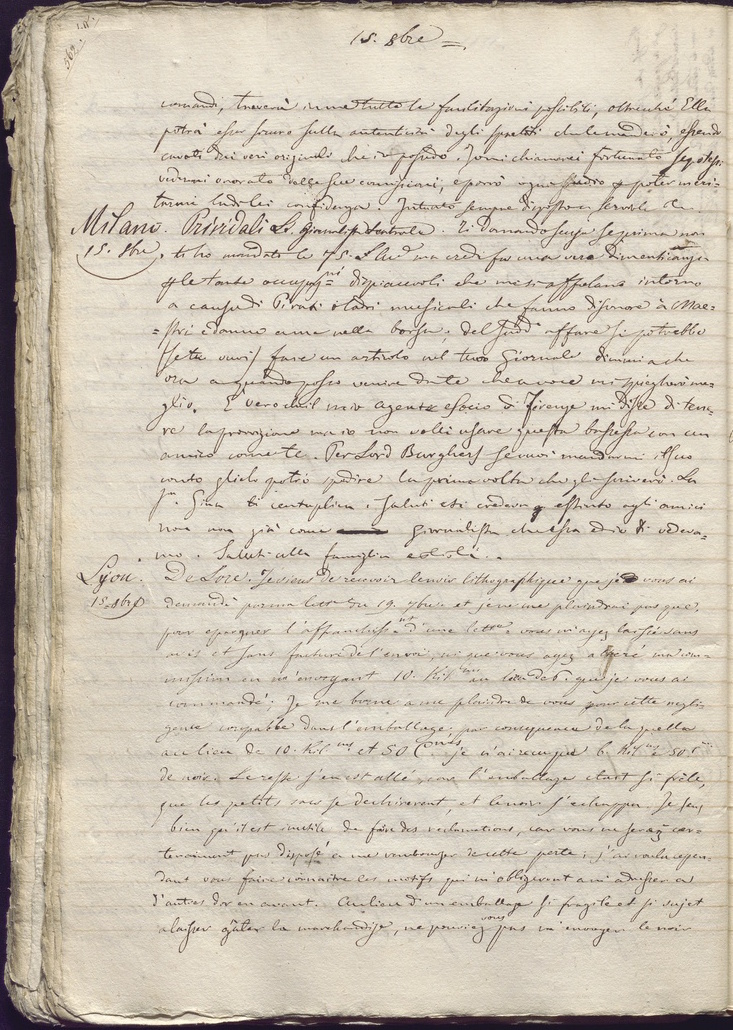 562
15. 8bre
comandi, troverà in me tutte le facilitazioni possibili, oltreché Ella
potrà esser sicuro sulla autenticità degli spartiti che le manderò essendo
cavati dai veri originali che io possiedo. Io mi chiamerei fortunato se potessi
vedermi onorato delle sue comissioni, e porrò ogni studio per poter meri-
tarmi la di lei confidenza. Intanto sempre
Milano. Prividali L. Giornalista Teatrale. Ti domando scusa se prima non
15. 8bre. ti ho mandato le 75. ma credi fu una vera dimenticanza
per le tante occupni dispiacevoli che mi si affollano intorno
a causa di Pirati o ladri musicali che fanno disonore ai Mae-
stri e danno a me nella borsa; del sudd affare si potrebbe
se tu vuoi fare un articolo nel tuo Giornale dimmi a che
ora a quando posso venire da te che a voce mi spiegherò me-
glio. È vero che il mio agente e socio di Firenze mi disse di tene-
re la provvigione ma io non volli usare questa bassezza con un
amico come te. Per Lord Burghers se vuoi mandarmi il suo
conto glielo potrò spedire la prima volta che gli scriverò. La
Sra Gina ti centuplica i saluti e ti credeva più affettuoso agli amici
ma non già come giornalista che essa ed io ti vedeva-
mo. Saluti alla famiglia
Lyon. De Lore. Je viens de recevoir le noir lithographique que je vous ai
15. 8bre demandé par ma lettre du 19. 7bre et je ne me plaindrai pas que,
pour épargner l'affranchissnt d'une lettre vous m'ayez laissé sans
avis et sans facture de l'envoi, ni que vous ayez altéré ma com-
mission en m'envoyant 10. Kilmes au lieu de 6. que je vous ai
commandé; Je me borne a me plaindre de vous pour cette négli-
gence coupable dans l'emballage, par conséquence de laquelle
au lieu de 10. Kilmes et 50 Cmes je n'ai reçu que 6. Kilmes e 50.
de noir. Le reste s'en est allé, car l'emballage etait si frêle,
que les petits sacs se dechirerent, et le noir s'echappa. Je sais
bien qu'il est inutile de faire des reclamations, car vous ne serez cer-
tainement pas disposé a me rembourser de cette perte; j'ai voulu cepen-
dant vous faire connaitre les motifs qui m'obligeront a m'adresser a
d'autres dor en avant. Au lieu d'un emballage si fragile et si sujet
a laisser gâter la marchandise, ne pouviez vous pas m'envoyer le noir